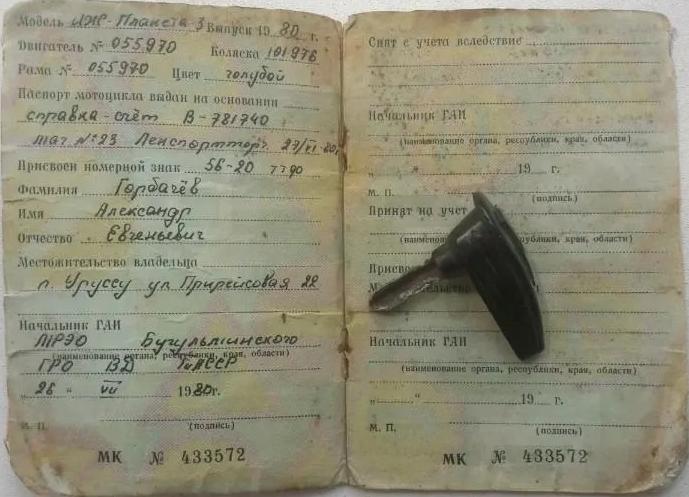 Модель ИЖ-Планета 3 Выпуск 1980 г.
Двигатель № 055970 Коляска 101976
Рама № 055970 Цвет голубой
Паспорт мотоцикла выдан на основании
справка-счёт В-781740
маг. №23 Ленспортторг 23/VI-80г
Присвоен номерной знак 56-20 ттфо
Фамилия Горбачёв
Имя Александр
Отчество Евгеньевич
Местожительство владельца
п. Уруссу ул. Прирейсовая 22
Начальник ГАИ
МРЭО Бугульминского
(наименование органа, республики, края, области)
ГРО ВД ТАССР
„26 “ VII 1980г.
М. П. (подпись)
МК № 433572
Снят с учета вследствие
Начальник ГАИ
(наименование органа, республики, края, области)
„ “ 19 г.
М. П. (подпись)
Принят на учет
(наименование республики, края, области)
Присвоен
Начальник ГАИ
(наименование органа, республики, края, области)
„ “ 19 г.
М. П. (подпись)
МК № 433572